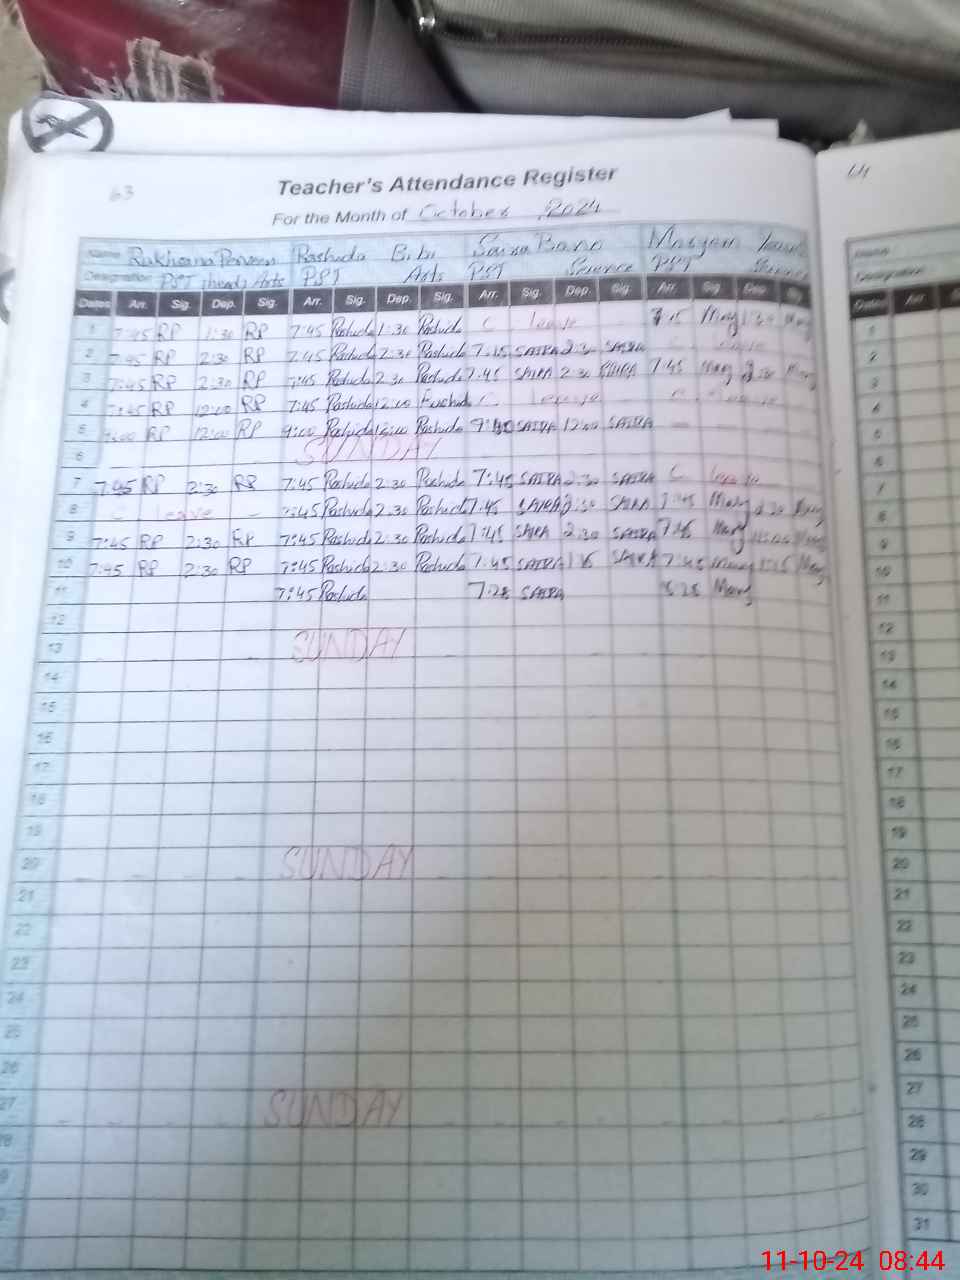 63
64
Teacher's Attendance Register
For the Month of October, 2024
Name Rukhsana Parveen Rashida Bibi Saira Bano Maryam
Designation PST (head) Arts PST Arts PST Science PST Science
Dates Arr. Sig. Dep. Sig. Arr. Sig. Dep. Sig. Arr. Sig. Dep. Sig. Arr. Sig. Dep. Sig.
1 7:45 RP 1:30 RP 7:45 Rashida 1:30 Rashida C leave
2 7:45 RP 2:30 RP 7:45 Rashida 2:30 Rashida 7:45 SAIRA 2:30 SAIRA C leave
3 7:45 RP 2:30 RP 7:45 Rashida 2:30 Rashida 7:45 SAIRA 2:30 SAIRA 7:45 Mary 2:30 Mary
4 7:45 RP 12:00 RP 7:45 Rashida 12:00 Rashida C leave
5 9:00 RP 12:00 RP 9:00 Rashida 12:00 Rashida SAIRA 12:00 SAIRA
6 SUNDAY
7 7:45 RP 2:30 RP 7:45 Rashida 2:30 Rashida 7:45 SAIRA 2:30 SAIRA C leave
8 C leave - 7:45 Rashida 2:30 Rashida 7:45 SAIRA 2:30 SAIRA 7:45 Mary 2:30 Mary
9 7:45 RP 2:30 RP 7:45 Rashida 2:30 Rashida 7:45 SAIRA 2:30 SAIRA 7:45 Mary Mary
10 7:45 RP 2:30 RP 7:45 Rashida 2:30 Rashida 7:45 SAIRA SAIRA 7:45 Mary Mary
11 7:45 Rashida 7:28 SAIRA Mary
12
13 SUNDAY
14
15
16
17
18
19
20 SUNDAY
21
22
23
24
25
26
27 SUNDAY
28
9
Name
Designation
Dates Arr.
1
2
3
4
5
6
7
8
9
10
11
12
13
14
15
16
17
18
19
20
21
22
23
24
25
26
27
28
29
30
31
11-10-24 08:44